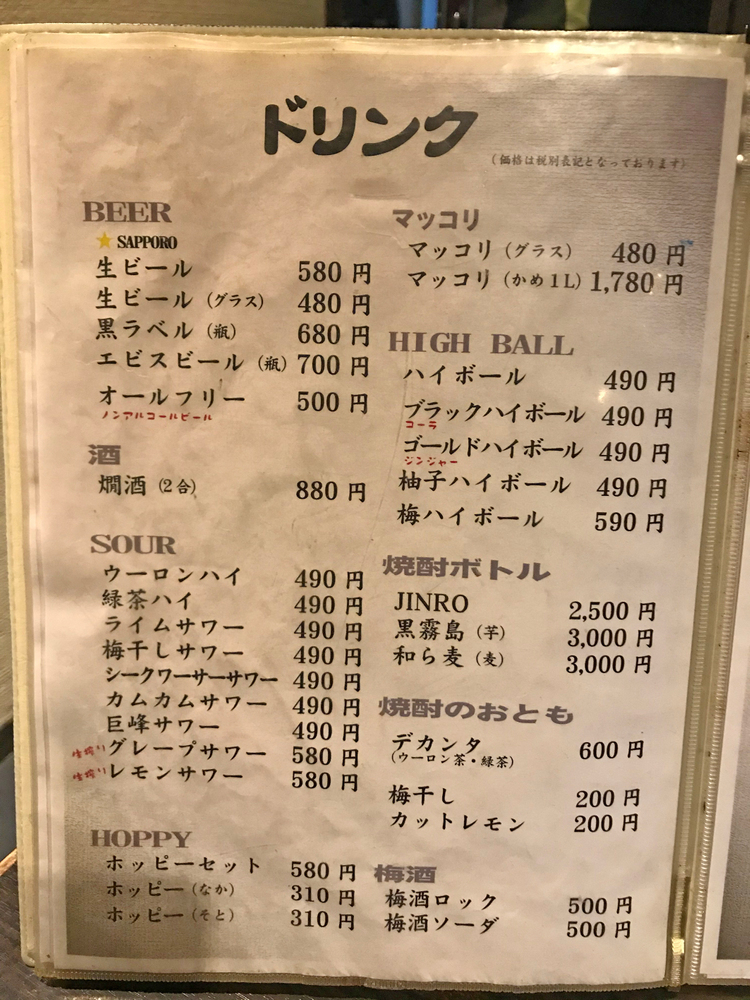 ドリンク
（価格は税別表記となっております）
BEER
★ SAPPORO
生ビール 580 円
生ビール（グラス） 480 円
黒ラベル（瓶） 680 円
エビスビール（瓶） 700 円
オールフリー 500 円
ノンアルコールビール
酒
燗酒（2合） 880 円
SOUR
ウーロンハイ 490 円
緑茶ハイ 490 円
ライムサワー 490 円
梅干しサワー 490 円
シークワーサーサワー 490 円
カムカムサワー 490 円
巨峰サワー 490 円
生搾り グレープサワー 580 円
生搾り レモンサワー 580 円
HOPPY
ホッピーセット 580 円
ホッピー（なか） 310 円
ホッピー（そと） 310 円
マッコリ
マッコリ（グラス） 480 円
マッコリ（かめ1L） 1,780 円
HIGH BALL
ハイボール 490 円
ブラックハイボール 490 円
コーラ
ゴールドハイボール 490 円
ジンジャー
柚子ハイボール 490 円
梅ハイボール 590 円
焼酎ボトル
JINRO 2,500 円
黒霧島（芋） 3,000 円
和ら麦（麦） 3,000 円
焼酎のおとも
デカンタ 600 円
（ウーロン茶・緑茶）
梅干し 200 円
カットレモン 200 円
梅酒
梅酒ロック 500 円
梅酒ソーダ 500 円